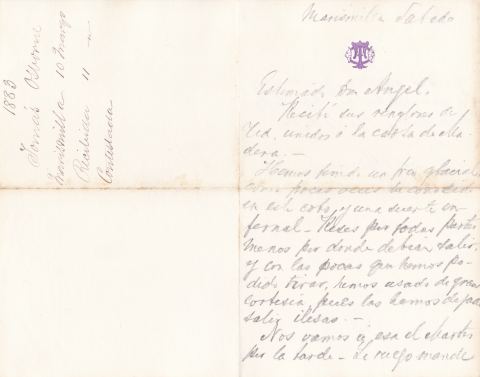 1883
Tomás Osborne
Marismilla 10 Marzo
Recibida 11 "
Contestada
Marismilla Sabado
Estimado Don Angel:
Recibí sus renglones de
Vd. unidos á la carta de Ma-
dera. —
Hemos tenido un frio glacial
como pocas veces he conocido
en este coto, y una suerte in-
fernal — Reses por todas partes
menos por donde debian salir,
y con las pocas que hemos po-
dido tirar, hemos usado de gran
cortesia pues las hemos dejado
salir ilesas. —
Nos vamos á esa el Martes
por la tarde — Le ruego mande